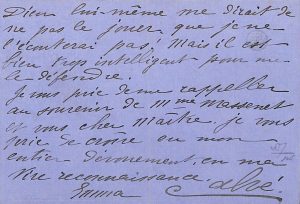 Dieu lui-même me dirait de
ne pas le jouer, que je ne
l'écouterai pas! Mais il est
bien trop intelligent pour me
le défendre.
Je vous prie de me rappeller
au souvenir de Mme Massenet
et vous cher Maître, je vous
prie de croire en mon
entier dévouement, en ma
vive reconnaissance.
Emma Calvé.